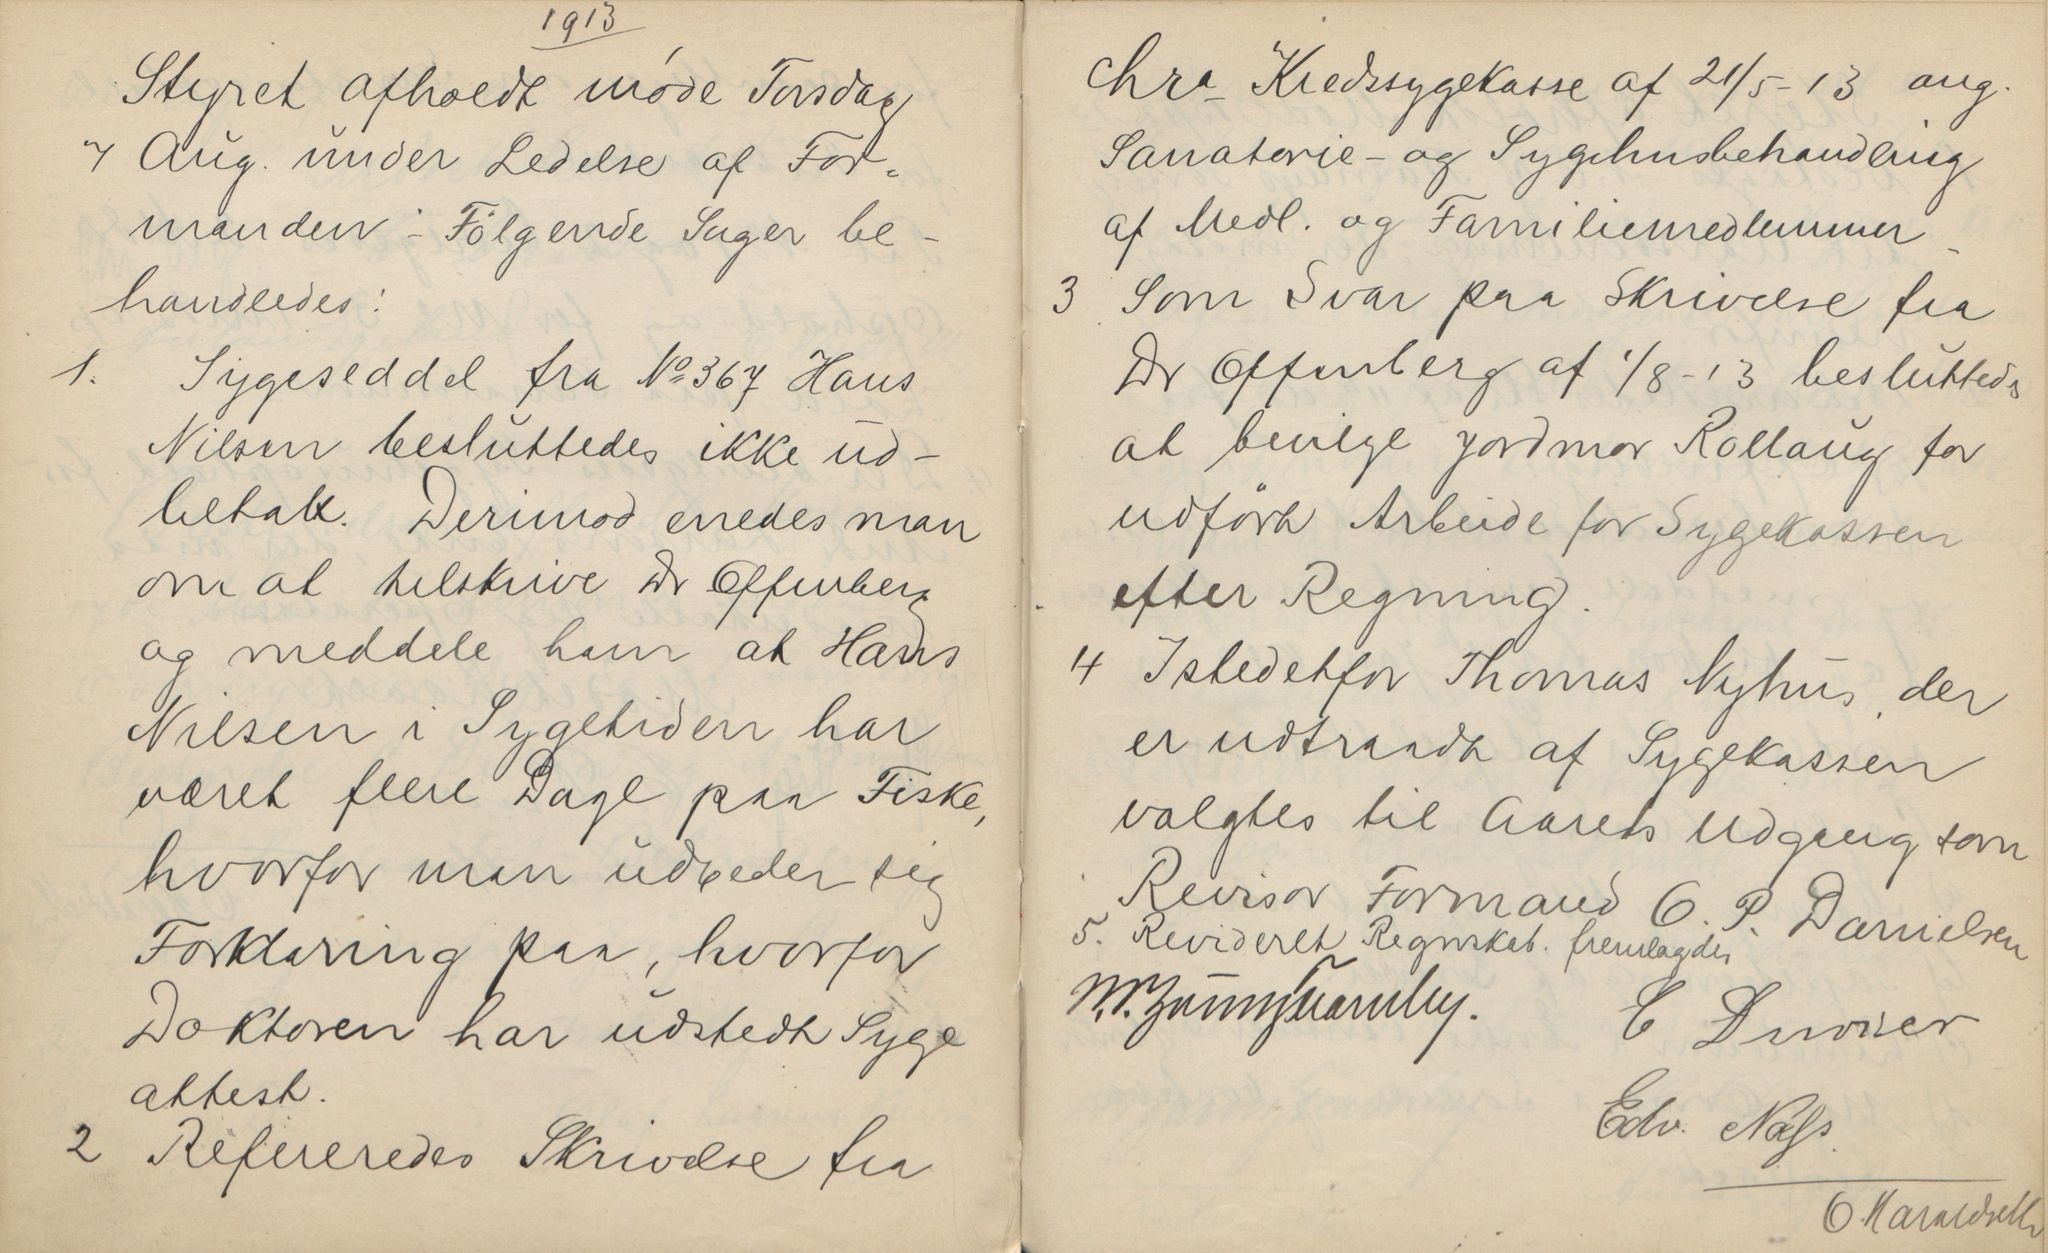 1913
Styret afholdt møde Torsdag
7 Aug. under Ledelse af For-
manden - Følgende Sager be-
handledes:
1. Sygeseddel fra No 367 Hans
Nilsen besluttedes ikke ud-
betalt. Derimod enedes man
om at tilskrive Dr Offenberg
og meddele ham at Hans
Nilsen i Sygetiden har
været flere Dage paa Fiske,
hvorfor man udbeder sig
Forklaring paa, hvorfor
Doktoren har udstedt Syge
attest.
2 Refereredes Skrivelse fra
Chra Kredssygekasse af 21/5-13 ang.
Sanatorie- og Sygehusbehandling
af Medl. og Familiemedlemmer
3 Som Svar paa Skrivelse fra
Dr Offenberg af 1/8-13 besluttedes
at bevilge jordmor Rollaug for
udført Arbeide for Sygekassen
efter Regning.
4 Istedetfor Thomas Nyhus, der
er udtraadt af Sygekassen
valgtes til Aarets Udgang som
Revisor Formand O. P. Danielsen
5. Revideret Regnskab. fremlagdes
Edv. Næss.